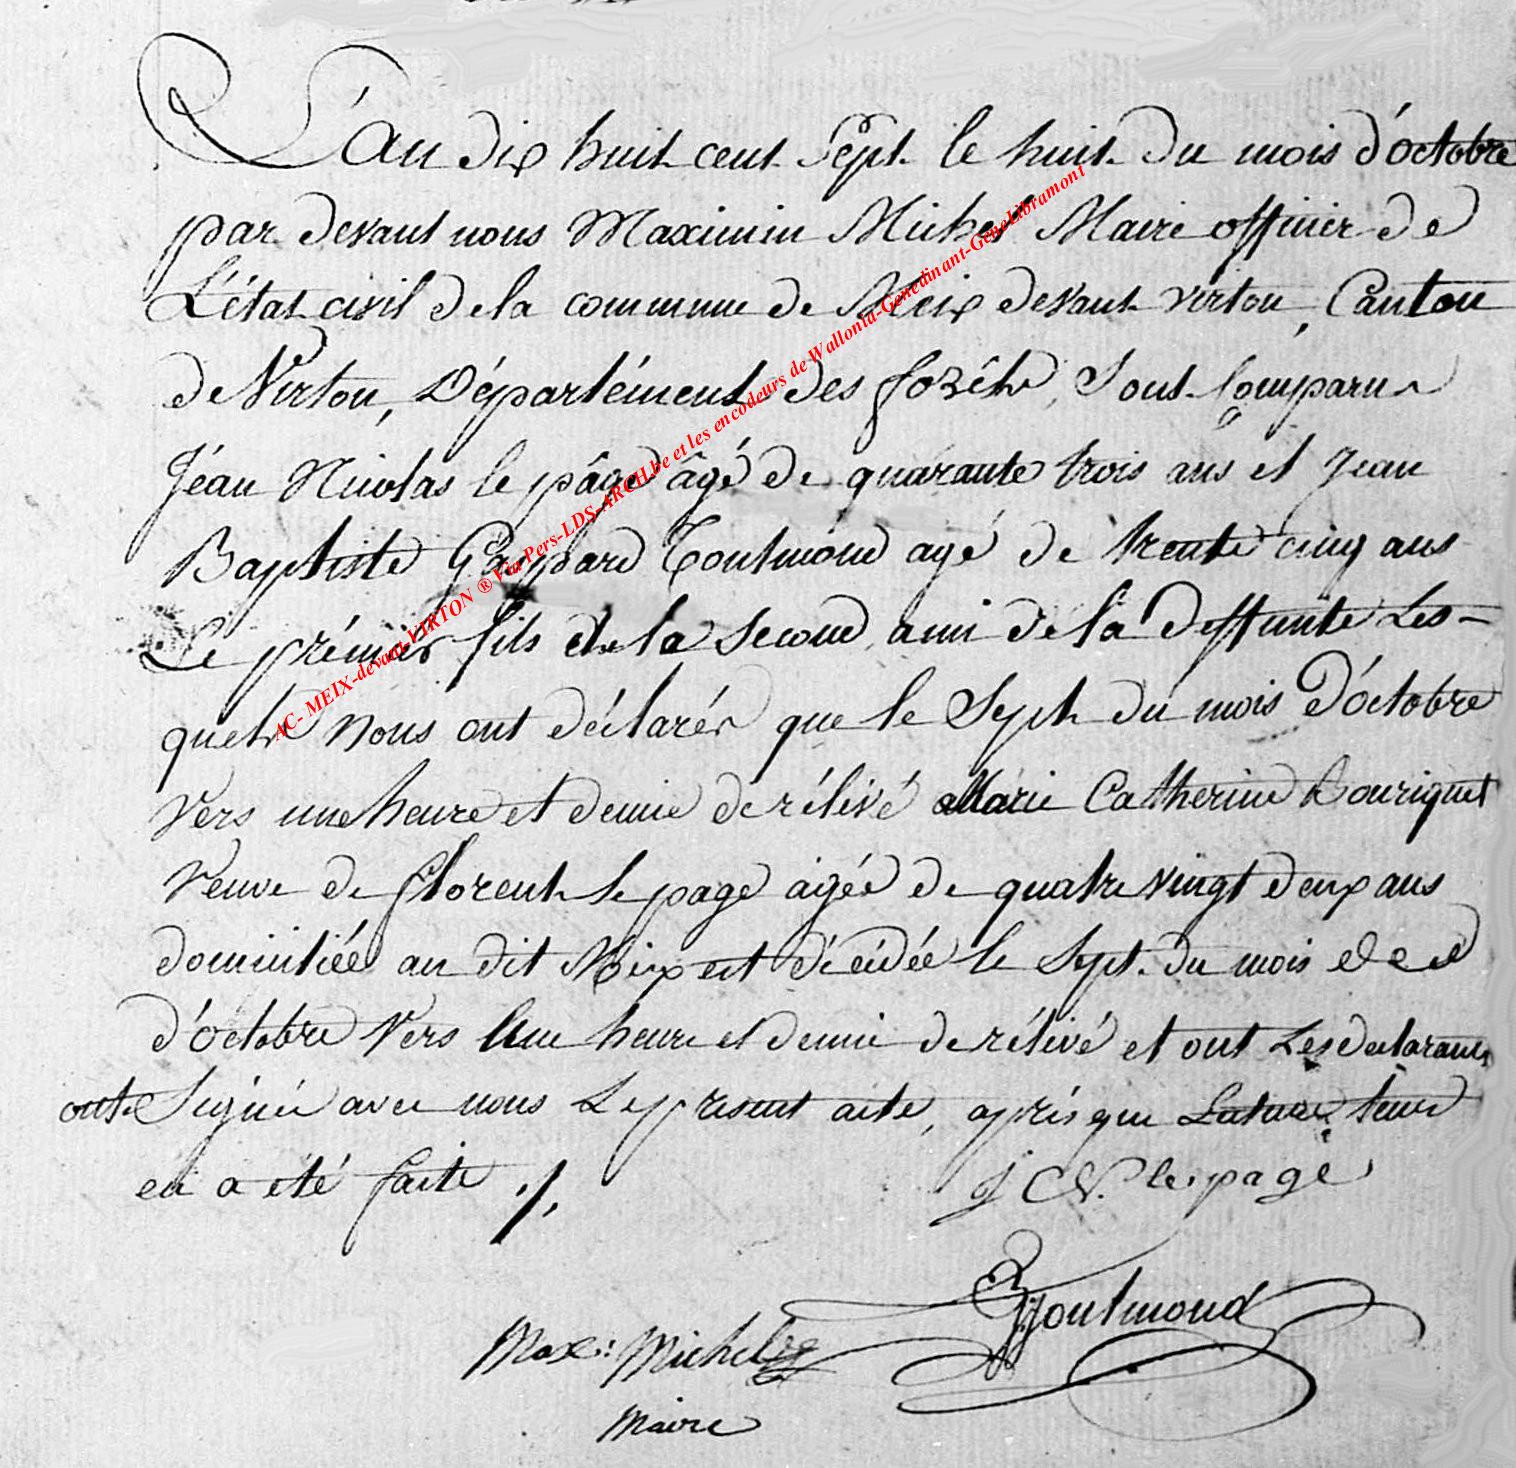 L'an dix huit cent Sept le huit du mois d'octobre
par devant nous Maximin Michel Maire officier de
L'état civil de la commune de Meix devant virton, Canton
de Virton, Département des forêts, Sont Comparus
Jéan Nicolas le pâge âgé de quarante trois ans et Jean
Baptiste Gaspard Toutmond agé de trente cinq ans
Le prémier fils de la second ami de la deffunte Les-
quels Nous ont déclarés que le Sept du mois d'octobre
vers une heure et demie de rélévé Marie Catherine Bouriquet
veuve de florent le page aigée de quatre vingt deux ans
domiciliée au dit Meix est décédée le Sept du mois
d'octobre vers une heure et demie de rélévé et ont Les declarants
ont Signés avec nous Le présent acte, après que Lecture leur
en a été faite ./.
j N. le page
Toutmond
Max: Michel
Maire
AC- MEIX-devant-VIRTON ® Via Pers-LDS-ARCH.be et les encodeurs de Wallonia-Genedinant-GeneLibramont